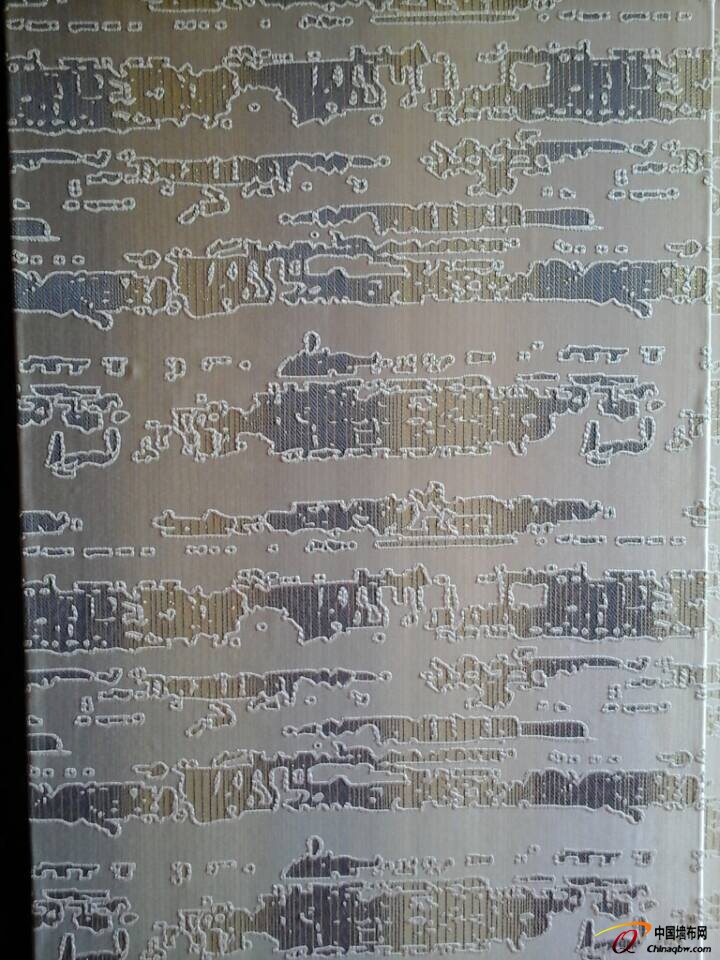 中国墙布网
Chinaqbw.com